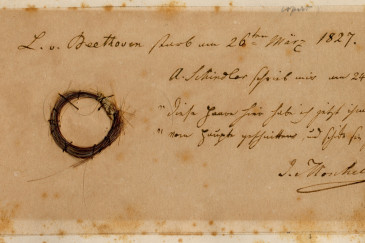 L. v. Beethoven starb am 26ten März 1827.
A. Schindler schrieb mir am 24
"diese Haare hier hab ich jetzt
"nem Haupte geschnitten, und schicke